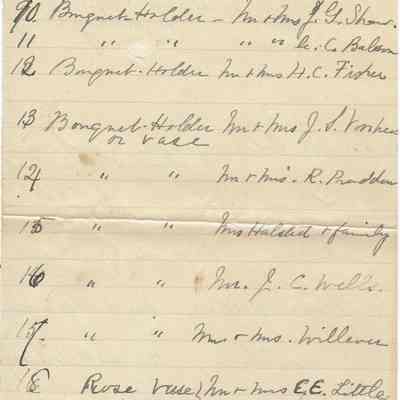 10. Boquet-Holder - Mr & Mrs J. G. Shaw.
11 " " " " G. C.
12 Boquet-Holder Mr & Mrs H. C. Fisher
13 Bouquet-Holder Mr & Mrs J. S.
or vase
14 " " Mr & Mrs. R. Prudden
15 " " Mrs Halsted & family
16 " " Mr. J. C. Wells.
17. " " Mr & Mrs.
18 Rose Vase Mr & Mrs E.E. Little